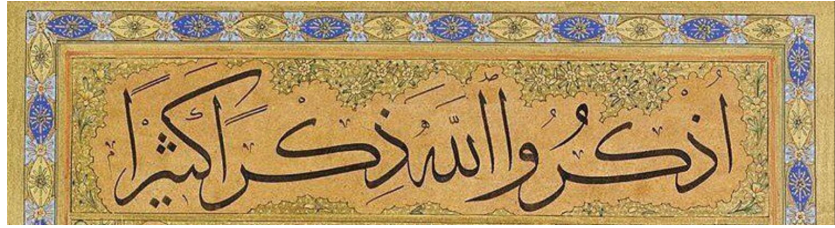 اُذْكُرُوا اللّٰهَ ذِكْرًا كَثِيرًا